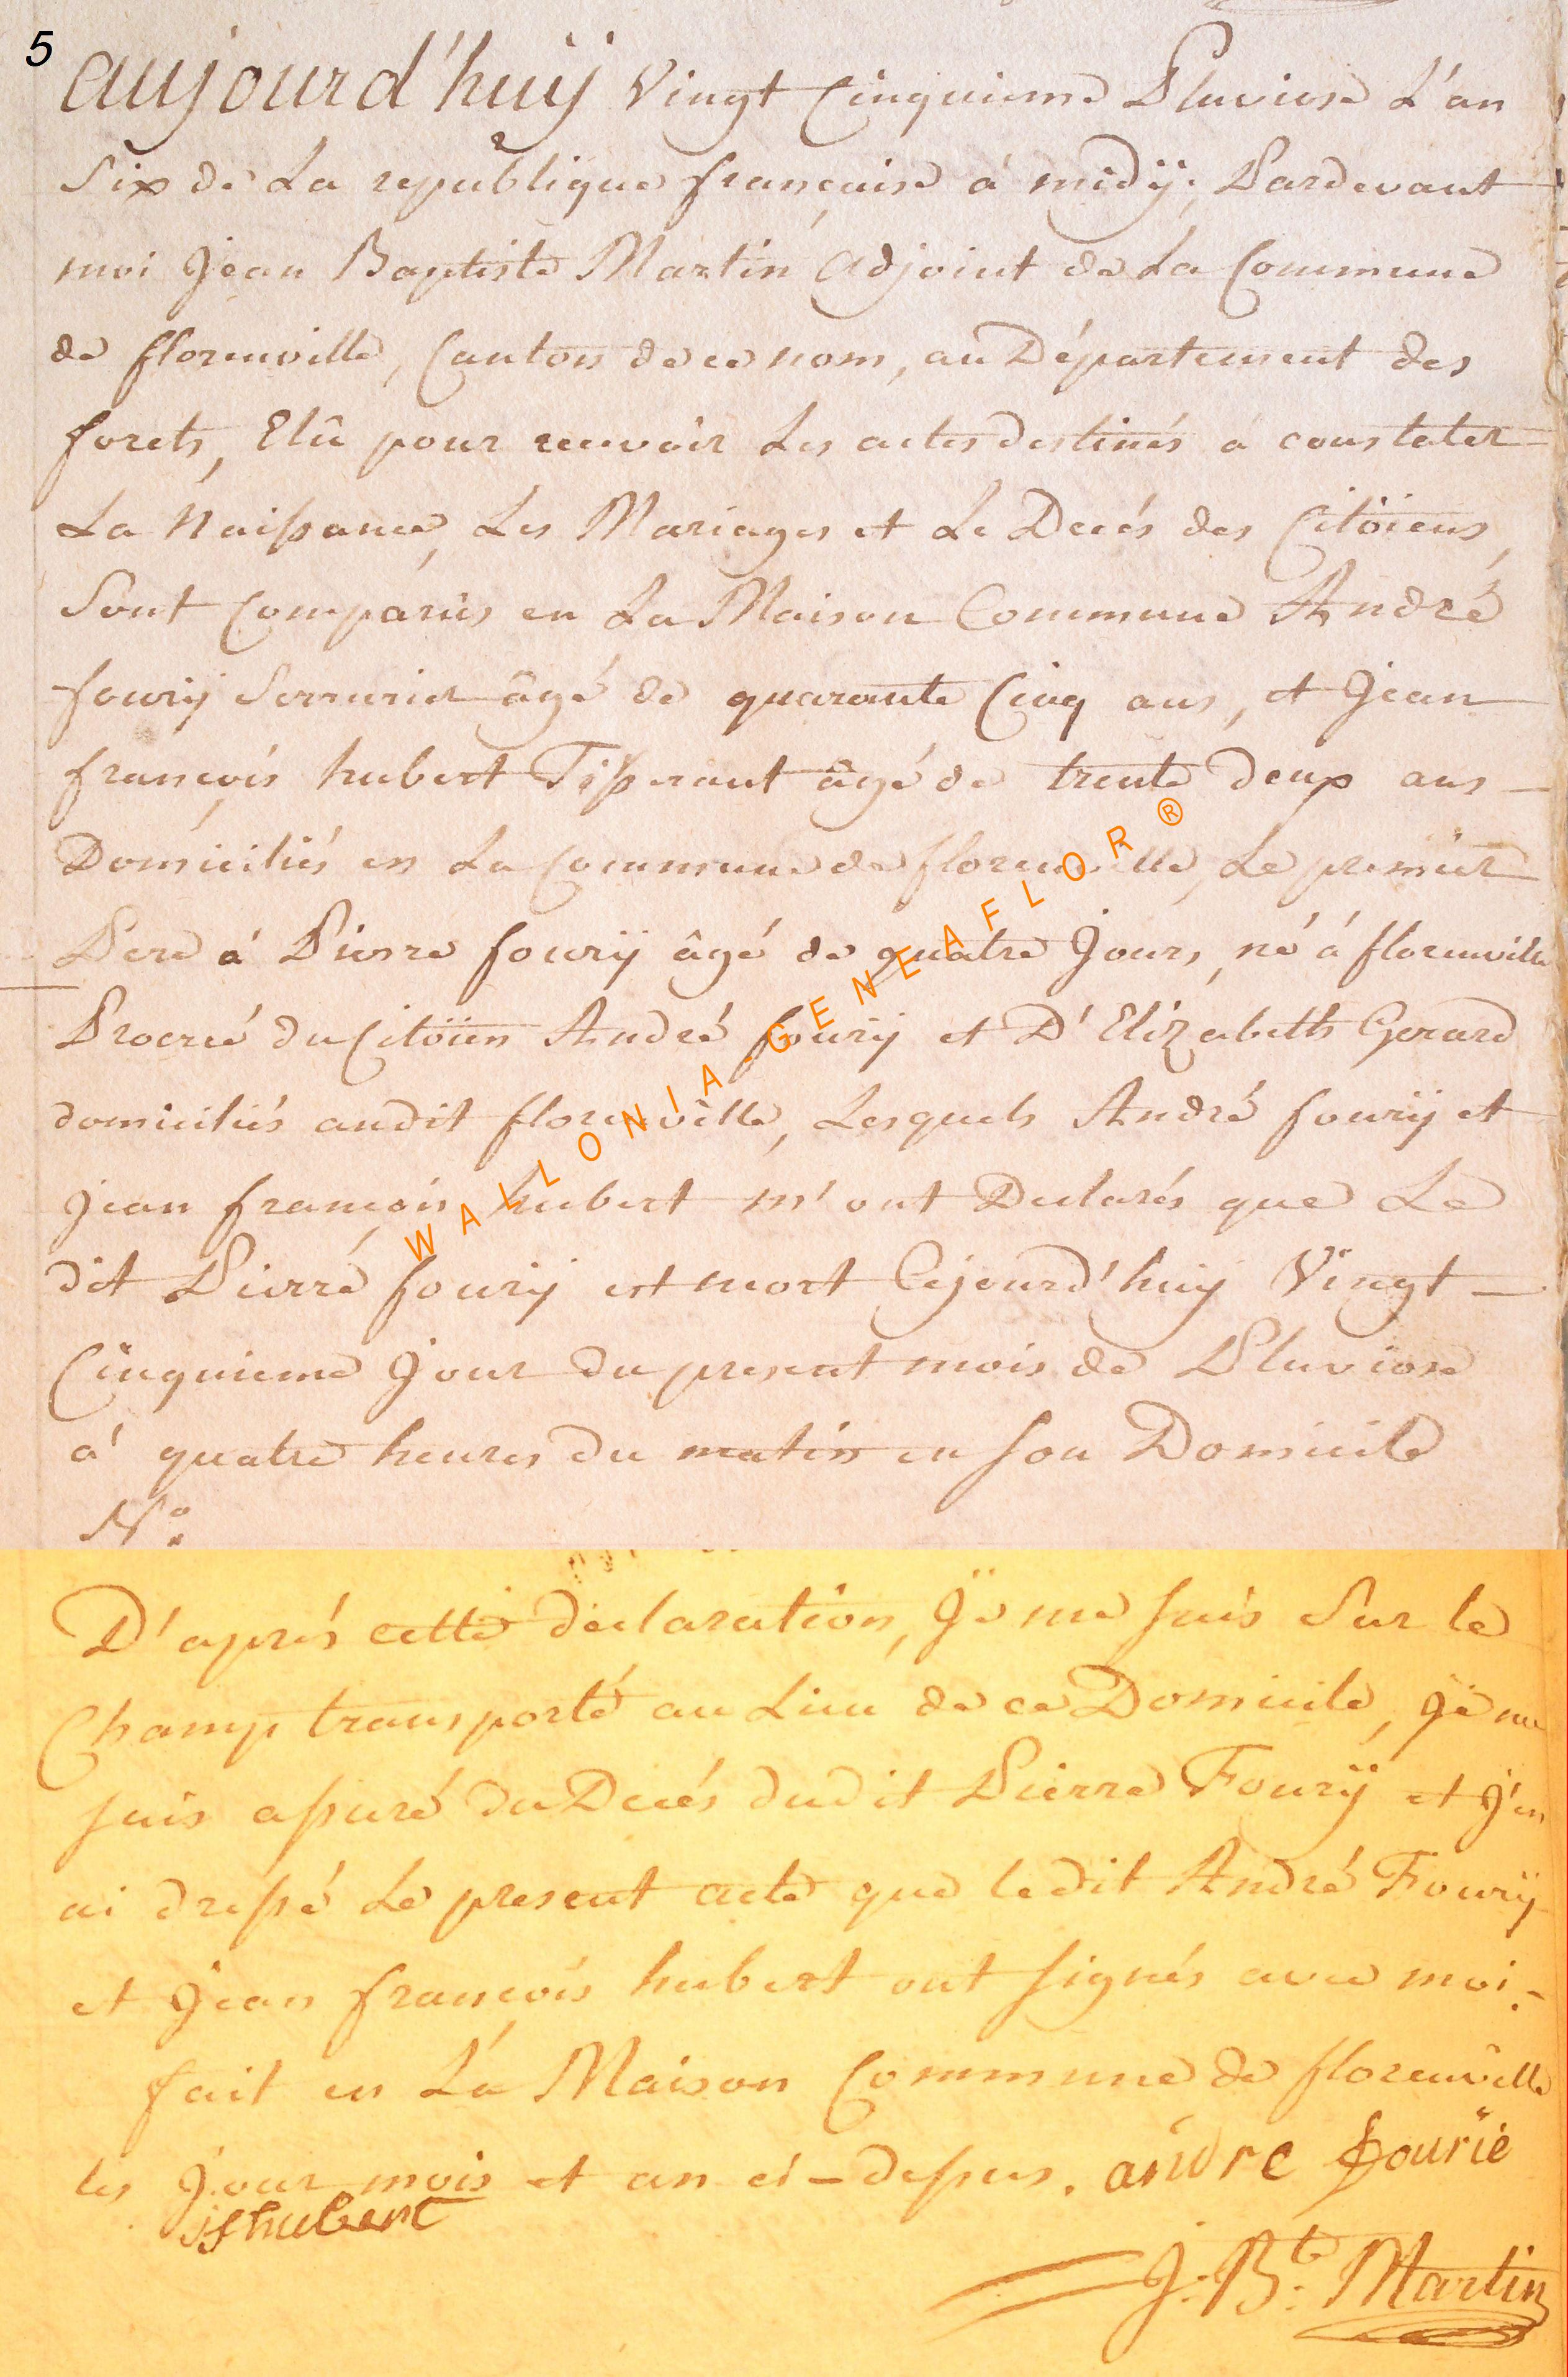 5
aujourd'huÿ Vingt Cinquieme Pluviose L'an
Six de La republique française à midÿ; Pardevant
moi Jean Baptiste Martin Adjoint de La Commune
de florenville, Canton de ce nom, au Département des
forets, Elû pour recevoir Les actes destinés à constater
La Naissance, Les Mariages et Le Decés des Citöiens,
Sont Comparûs en La Maison Commune André
fourÿ Serrurier âgé de quarante Cinq ans, et Jean
françois hubert Tisserant âgé de trente deux ans
Domiciliés en La Commune de florenville, Le premier
Pere à Pierre fourÿ âgé de quatre Jours, né à florenville
Procréé du Citöien André fourÿ et D'Elizabeth Gerard
domiciliés audit florenville, Lesquels André fourÿ et
Jean françois hubert m'ont Declarés que Le
dit Pierre fourÿ est mort Cejourd'huy Vingt
Cinquieme Jour du present mois de Pluviose
à quatre heures du matin en son Domicile
N°.
WALLONIA-GENEAFLOR ®
D'aprés cette declaration, Je me suis Sur le
Champ transporté au Lieu de ce Domicile, Je me
suis assuré du Decés dudit Pierre Fourÿ et J'en
ai dressé Le present acte que ledit André Fourÿ
et Jean françois hubert ont signés avec moi.
fait en La Maison Commune de florenville
les Jour mois et an ci-dessus. andre fourie
jfhubert
J: Bte: Martin